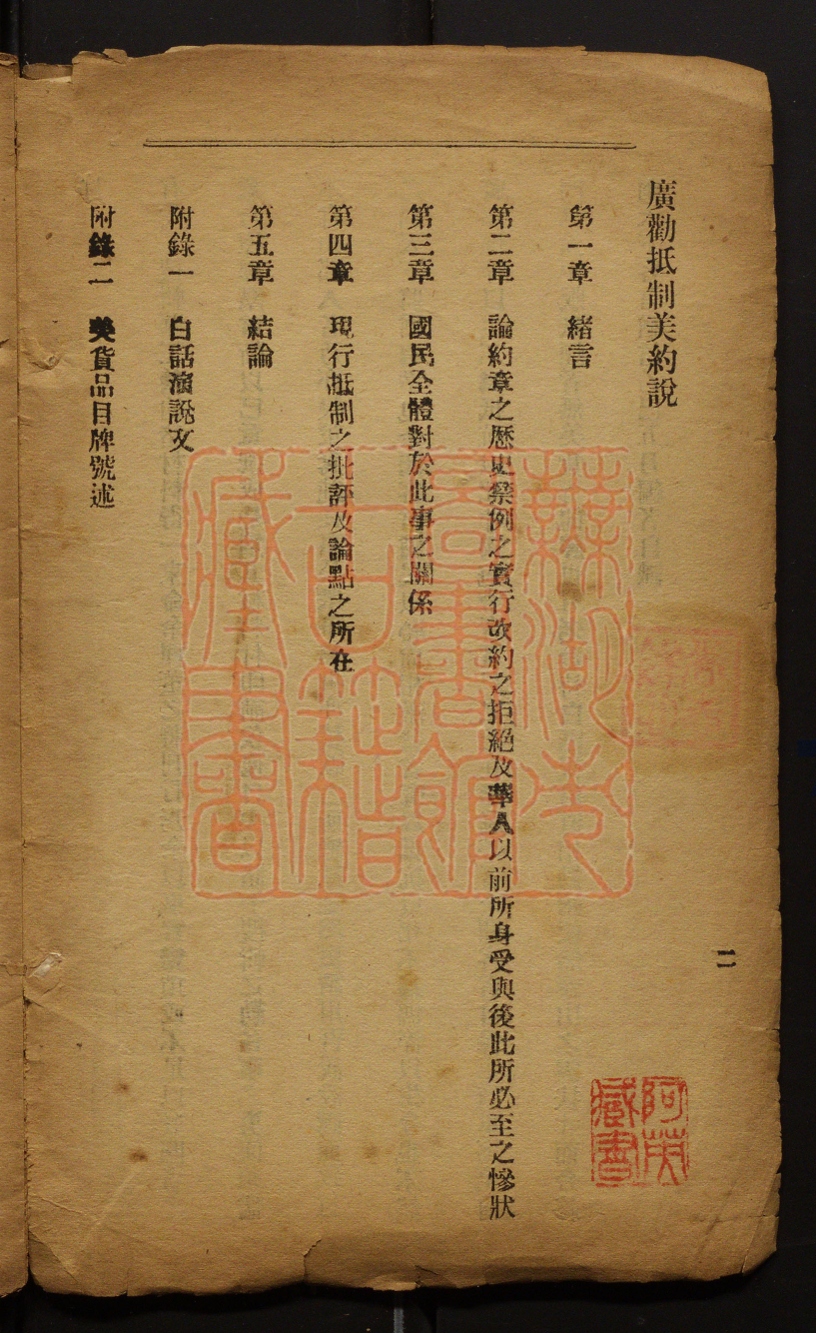 廣勸抵制美約說
第一章 緒言
第二章 論約章之歷史禁例之實行改約之拒絕及華人以前所身受與後此所必至之慘狀
第三章 國民全體對於此事之關係
第四章 現行抵制之批評及論點之所在
第五章 結論
附錄一 白話演說文
附錄二 美貨品目牌號述
二
阿英
藏書
蕪湖市
圖書館
古籍
藏書